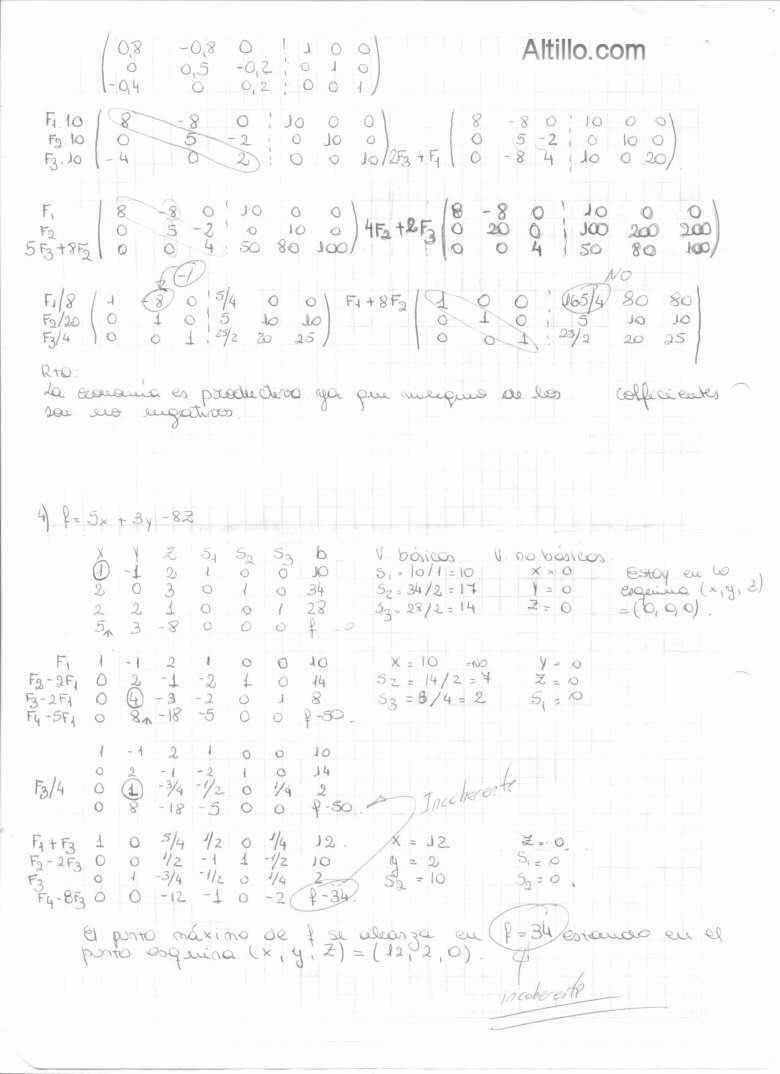 Altillo.com
0,8 -0,8 0 1 0 0
0 0,5 -0,2 0 1 0
-0,4 0 0,2 0 0 1
F1.10 8 -8 0 10 0 0 8 -8 0 10 0 0
F2.10 0 5 -2 0 10 0 0 5 -2 0 10 0
F3.10 -4 0 2 0 0 10 2F3+F1 0 -8 4 10 0 20
F1 8 -8 0 10 0 0 8 -8 0 10 0 0
F2 0 5 -2 0 10 0 4F2+2F3 0 20 0 100 200 200
5F3+8F2 0 0 4 50 80 100 0 0 4 50 80 100
-1 NO
F1/8 1 -8 0 5/4 0 0 F1+8F2 1 0 0 165/4 80 80
F2/20 0 1 0 5 10 10 0 1 0 5 10 10
F3/4 0 0 1 25/2 20 25 0 0 1 25/2 20 25
Rta:
La economía es productiva ya que ninguno de los coeficientes
son no negativos.
4) f=5x+3y-8z
X Y Z S1 S2 S3 b V. básicas V. no básicas
1 -1 2 1 0 0 10 S1=10/1=10 x=0 Estoy en la
2 0 3 0 1 0 34 S2=34/2=17 y=0 esquina (x,y,z)
2 2 1 0 0 1 28 S3=28/2=14 z=0 =(0,0,0).
5 3 -8 0 0 0 f
F1 1 -1 2 1 0 0 10 x=10 NO y=0
F2-2F1 0 2 -1 -2 1 0 14 S2=14/2=7 z=0
F3-2F1 0 4 -3 -2 0 1 8 S3=8/4=2 S1=0
F4-5F1 0 8 -18 -5 0 0 f-50.
1 -1 2 1 0 0 10
0 2 -1 -2 1 0 14
F3/4 0 1 -3/4 -1/2 0 1/4 2
0 8 -18 -5 0 0 f-50.
Incoherente
F1+F3 1 0 5/4 1/2 0 1/4 12. x=12 z=0.
F2-2F3 0 0 1/2 -1 1 -1/2 10 y=2 S1=0
F3 0 1 -3/4 -1/2 0 1/4 2 S2=10 S3=0.
F4-8F3 0 0 -12 -1 0 -2 f-34.
El punto máximo de f se alcanza en f=34 estando en el
punto esquina (x,y,z)=(12,2,0).
incoherente